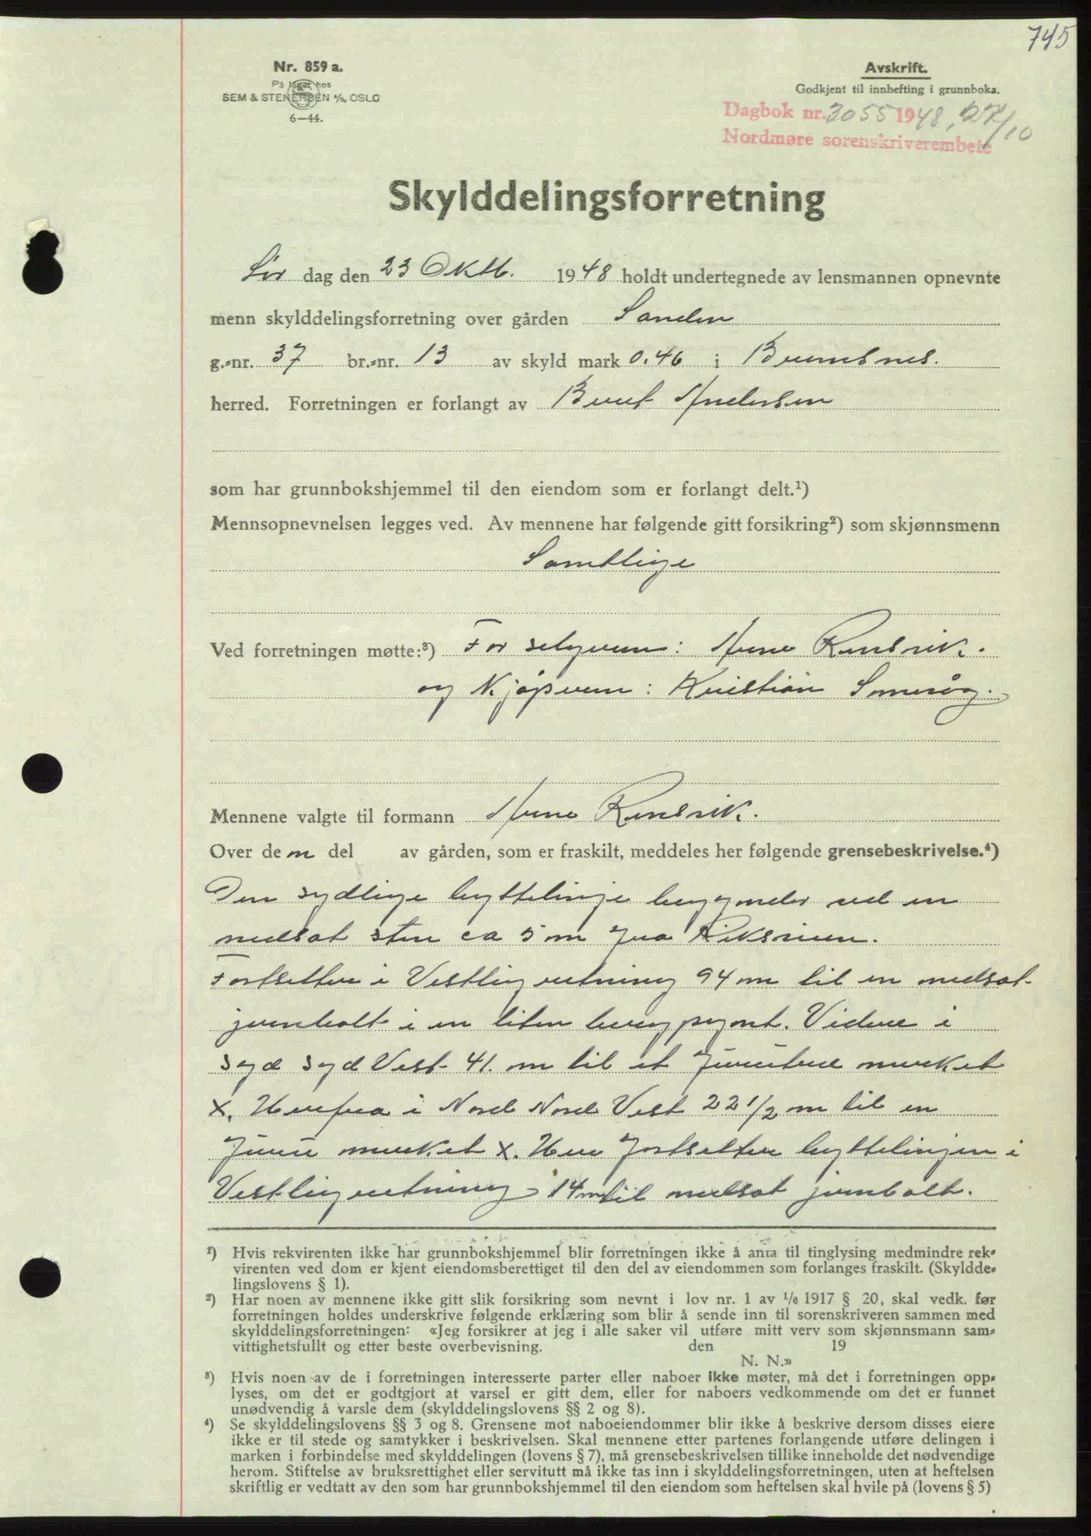 745
Nr. 859 a.
På lager hos
SEM & STENERSEN A/S, OSLO
6—44.
Avskrift.
Godkjent til innhefting i grunnboka.
Dagbok nr. 3055 1948, 27/10
Nordmøre sorenskriverembete
Skylddelingsforretning
Lør dag den 23 Oktb. 1948 holdt undertegnede av lensmannen opnevnte
menn skylddelingsforretning over gården Sanden
g.-nr. 37 br.-nr. 13 av skyld mark 0.46 i Bremsnes.
herred. Forretningen er forlangt av Berit Andersen
som har grunnbokshjemmel til den eiendom som er forlangt delt.¹)
Mennsopnevnelsen legges ved. Av mennene har følgende gitt forsikring²) som skjønnsmenn
Samtlige
Ved forretningen møtte:³) For selgeren: Arne Rensvik.
og Kjøperen: Kristian
Mennene valgte til formann Arne Rensvik.
Over den del av gården, som er fraskilt, meddeles her følgende grensebeskrivelse.⁴)
Den sydlige byttelinje begynder ved en
nedsat sten ca 5 m fra Riksveien.
Fortsetter i Vestlig retning 94 m til en nedsat
jernbolt i en liten bergpynt. Videre i
Syd Syd Vest 41. m til et furutre merket
X. Herfra i Nord Nord Vest 22 1/2 m til en
furu merket X. Her fortsetter byttelinjen i
Vestlig retning 14 m til nedsat jernbolt.
¹) Hvis rekvirenten ikke har grunnbokshjemmel blir forretningen ikke å anta til tinglysing medmindre rek-
virenten ved dom er kjent eiendomsberettiget til den del av eiendommen som forlanges fraskilt. (Skyldde-
lingslovens § 1).
²) Har noen av mennene ikke gitt slik forsikring som nevnt i lov nr. 1 av 1/6 1917 § 20, skal vedk. før
forretningen holdes underskrive følgende erklæring som blir å sende inn til sorenskriveren sammen med
skylddelingsforretningen: «Jeg forsikrer at jeg i alle saker vil utføre mitt verv som skjønnsmann sam-
vittighetsfullt og etter beste overbevisning. den 19
N. N.»
³) Hvis noen av de i forretningen interesserte parter eller naboer ikke møter, må det i forretningen opp-
lyses, om det er godtgjort at varsel er gitt dem, eller for naboers vedkommende om det er funnet
unødvendig å varsle dem (skylddelingslovens §§ 2 og 8).
⁴) Se skylddelingslovens §§ 3 og 8. Grensene mot naboeiendommer blir ikke å beskrive dersom disses eiere
ikke er til stede og samtykker i beskrivelsen. Skal mennene etter partenes forlangende utføre delingen i
marken i forbindelse med skylddelingen (lovens § 7), må grensebeskrivelsen tillike inneholde det nødvendige
herom. Stiftelse av bruksrettighet eller servitutt må ikke tas inn i skylddelingsforretningen, uten at heftelsen
skriftlig er vedtatt av den som har grunnbokshjemmel til den eiendom som heftelsen skal hvile på (lovens § 5)